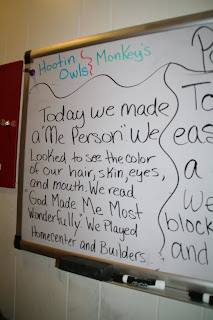 Hootin Owls } Monkey's
Today we made
a "Me Person" We
Looked to see the color
of our hair, skin, eyes,
and mouth. We read
"God Made Me Most
Wonderfully." We Played
Homecenter and Builders.
eas
a
we
block
and